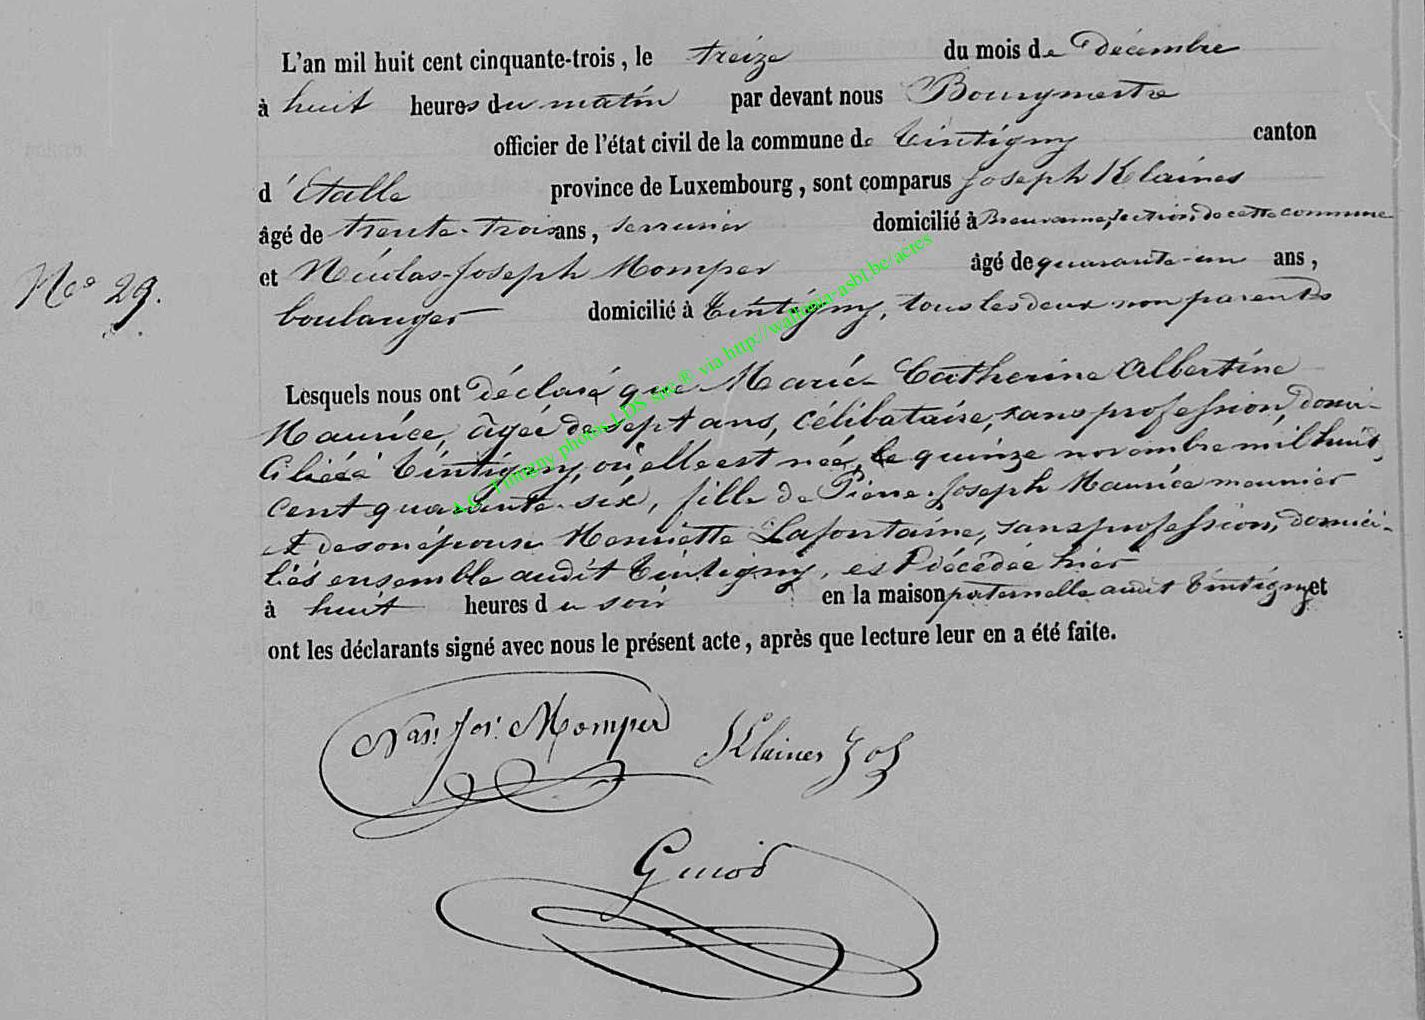 L'an mil huit cent cinquante-trois, le treize du mois de Décembre
à huit heures du matin par devant nous Bourgmestre
officier de l'état civil de la commune de Tintigny canton
d'Etalle province de Luxembourg, sont comparus Joseph Klaines
âgé de trente-trois ans, serrurier domicilié à Breuvanne, section de cette commune
et Nicolas-Joseph Momper âgé de quarante-un ans,
No 29.
boulanger domicilié à Tintigny, tous les deux non parents
Lesquels nous ont déclaré que Marie Catherine Albertine
Maurice, âgée de sept ans, célibataire, sans profession, domi-
ciliée à Tintigny, où elle est née, le quinze novembre mil huit
cent quarante-six, fille de Pierre-Joseph Maurice meunier
et de son épouse Henriette Lafontaine, sans profession, domici-
liés ensemble audit Tintigny, est décédée hier
à huit heures du soir en la maison paternelle audit Tintigny et
ont les déclarants signé avec nous le présent acte, après que lecture leur en a été faite.
A.C. Tintigny photos LDS site ® via http://wallonia-asbl.be/actes
Jos. Momper Klaines Jos